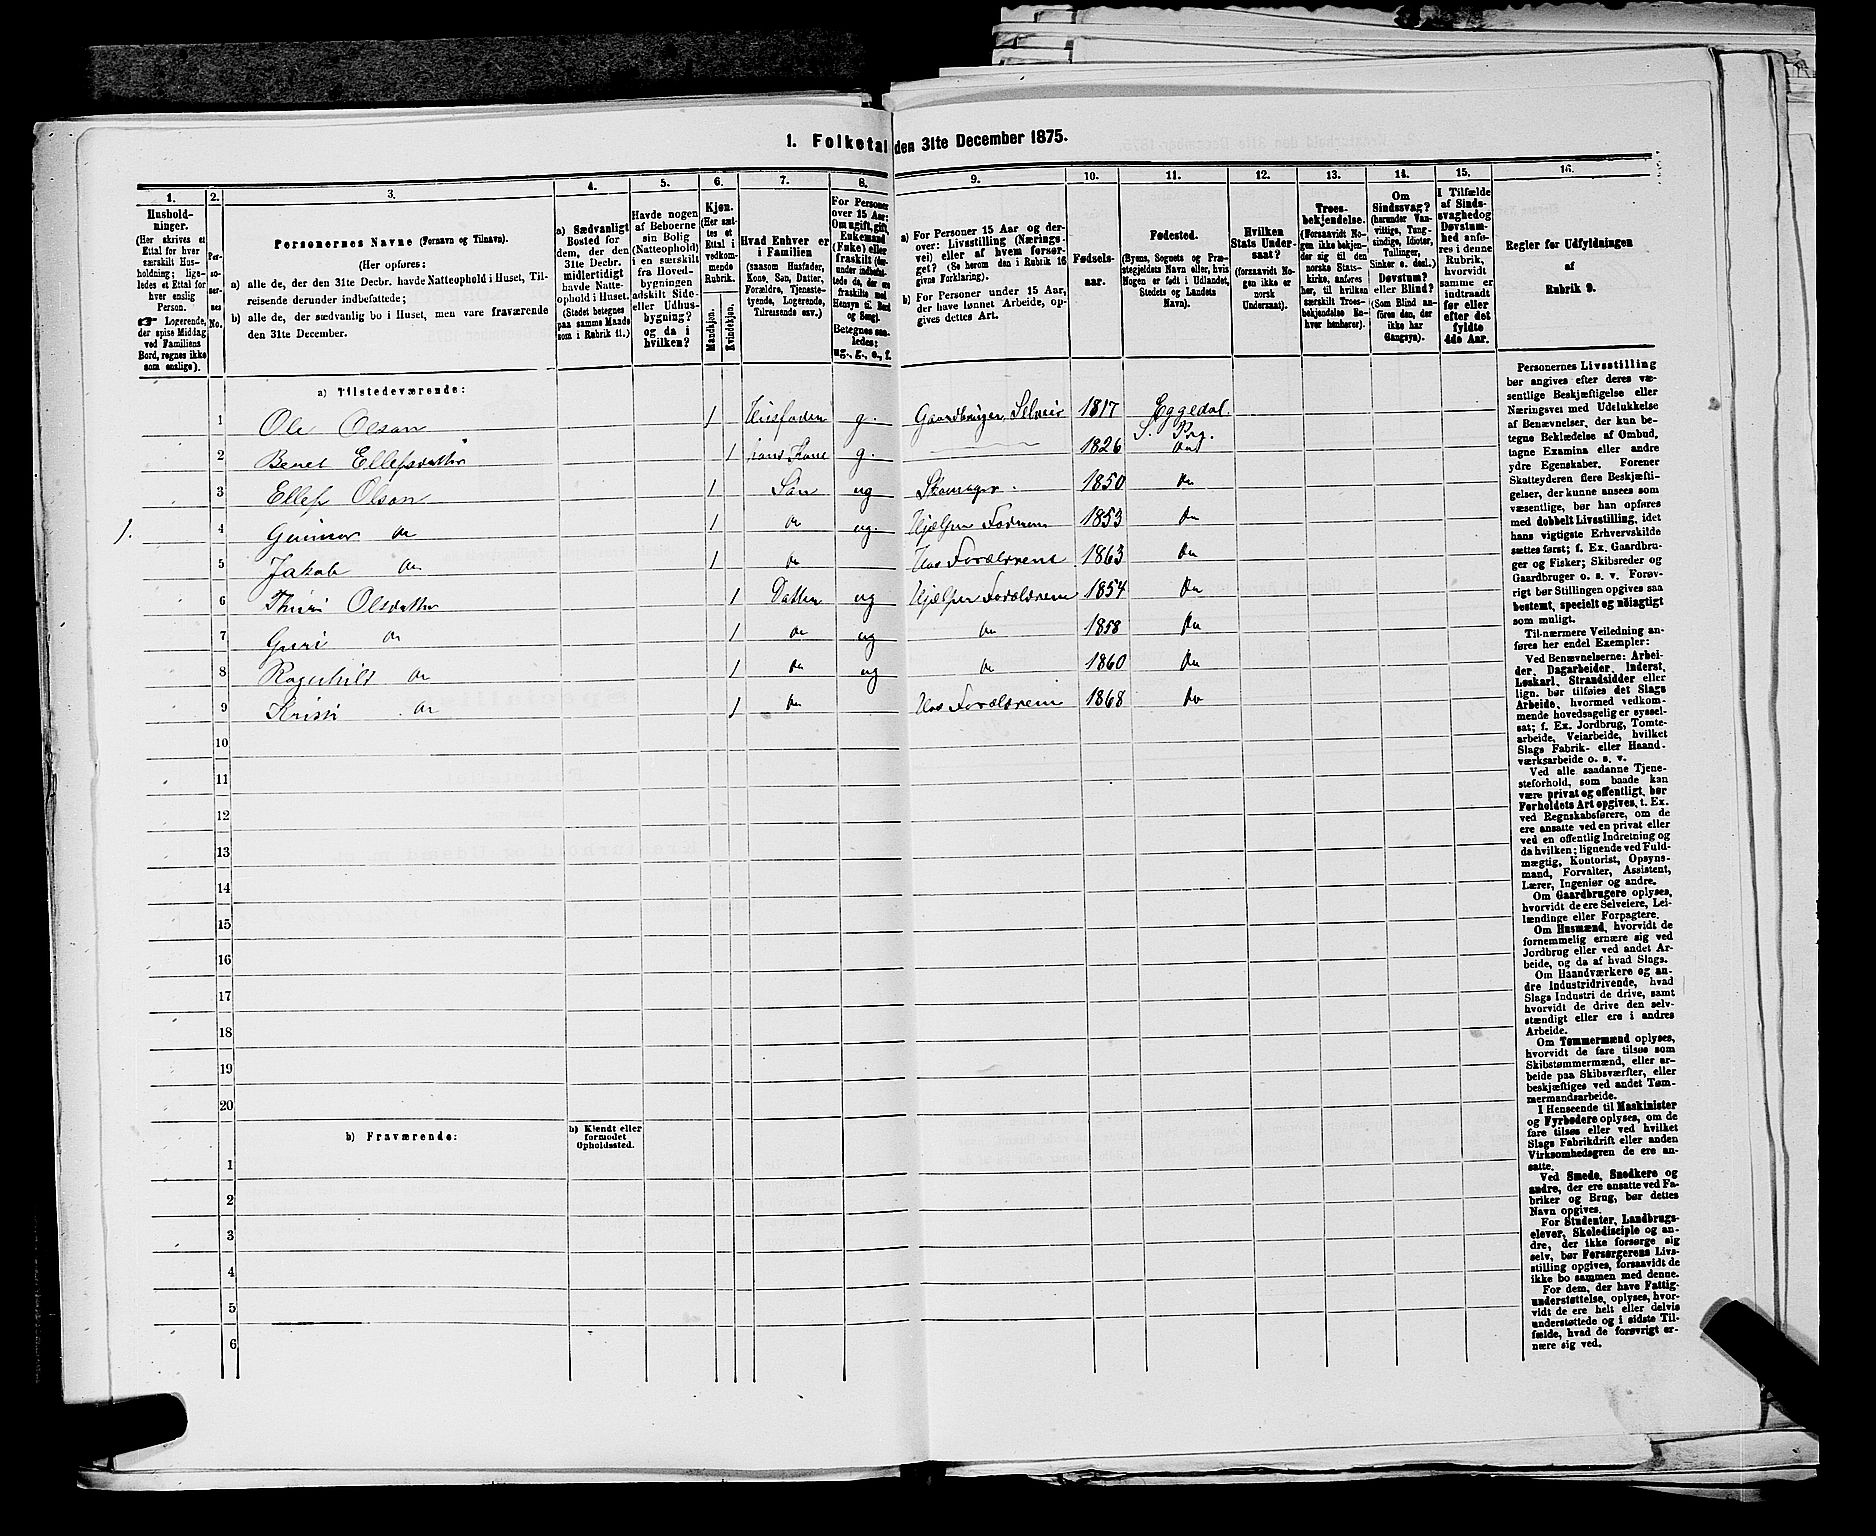 1. Folketal den 31te December 1875.
1. 2. 3. 4. 5. 6. 7. 8. 9. 10. 11. 12. 13. 14. 15. 16.
Hushold-
ninger.
(Her skrives et
Ettal for hver
særskilt Hus-
holdning; lige-
ledes et Ettal for
hver enslig
Person.
☛ Logerende,
der spise Middag
ved Familiens
Bord, regnes ikke
som enslige).
Per-
so-
ner-
nes
No.
Personernes Navne (Fornavn og Tilnavn).
(Her opføres:
a) alle de, der den 31te Decbr. havde Natteophold i Huset, Til-
reisende derunder indbefattede;
b) alle de, der sædvanlig bo i Huset, men vare fraværende
den 31te December.
a) Sædvanligt
Bosted for
dem, der den
31te Decbr.
midlertidigt
havde Natte-
ophold i Huset.
(Stedet betegnes
paa samme Maade
som i Rubrik 11.)
Havde nogen
af Beboerne
sin Bolig
(Natteophold)
i en særskilt
fra Hoved-
bygningen
adskilt Side-
eller Udhus-
bygning?
og da i
hvilken?
Kjøn.
(Her sæt-
tes et
Ettal i
vedkom-
mende
Rubrik.
Mandkjøn.
Kvindekjøn.
Hvad Enhver er
i Familien
(saasom Husfader,
Kone, Søn, Datter,
Forældre, Tjeneste-
tyende, Logerende,
Tilreisende osv.)
For Personer
over 15 Aar:
Om ugift, gift,
Enkemand
(Enke) eller
fraskilt (der-
under indbefat-
tede de, der ere
fraskilte med
Hensyn til Bord
og Seng).
Betegnes saa-
ledes:
ug., g., e., f.
a) For Personer 15 Aar og der-
over: Livsstilling (Nærings-
vei) eller af hvem forsør-
get? (Se herom den i Rubrik 16
givne Forklaring).
b) For Personer under 15 Aar,
der have lønnet Arbeide, op-
gives dettes Art.
Fødsels-
aar.
Fødested.
(Byens, Sognets og Præ-
stegjeldets Navn eller, hvis
Nogen er født i Udlandet,
Stedets og Landets
Navn).
Hvilken
Stats Under-
saat?
(forsaavidt No-
gen ikke er
norsk
Undersaat).
Troes-
bekjendelse.
(Forsaavidt No-
gen ikke bekjen-
der sig til den
norske Stats-
kirke, anføres
her, til hvilken
særskilt Troes-
bekjendelse En-
hver henhører).
Om
Sindssvag?
(herunder Van-
vittige, Tung-
sindige, Idioter,
Tullinger,
Sinker o. desl.)
Døvstum?
eller Blind?
(Som Blind an-
føres den, der
ikke har
Gangsyn).
I Tilfælde
af Sinds-
svaghed og
Døvstum-
hed anfø-
res i denne
Rubrik,
hvorvidt
samme er
indtraadt
før eller
efter det
fyldte
4de Aar.
Regler for Udfyldningen
af
Rubrik 9.
a) Tilstedeværende:
1 Ole Olsen 1 Husfader g. Gaardbruger Selveier 1817 Eggedal
S. Prg.
2 Beret Ellefsdatter 1 hans Kone g. 1826
3 Ellef Olson 1 Søn ug Skomager. 1850 do
1. 4 Gunnar do 1 do ug. Hjælper 1853 do
5 Jakob do 1 do Hos Forældrene 1863 do
6 Thuri Olsdatter 1 Datter ug Hjælper Forældrene 1854 do
7 Guri do 1 do ug do 1858 do
8 Ragnhild do 1 do ug do 1860 do
9 Kristi do 1 do Hos Forældrene 1868 do
10
11
12
13
14
15
16
17
18
19
20
b) Fraværende:
b) Kjendt eller
formodet
Opholdssted.
1
2
3
4
5
6
Personernes Livsstilling
bør angives efter deres væ-
sentlige Beskjæftigelse eller
Næringsvei med Udelukkelse
af Benævnelser, der kun be-
tegne Beklædelse af Ombud,
tagne Examina eller andre
ydre Egenskaber. Forener
Skatteyderen flere Beskjæfti-
gelser, der kunne ansees som
væsentlige, bør han opføres
med dobbelt Livsstilling, idet
hans vigtigste Erhvervskilde
sættes først; f. Ex. Gaardbru-
ger og Fisker; Skibsreder og
Gaardbruger o. s. v. Forøv-
rigt bør Stillingen opgives saa
bestemt, specielt og nøiagtigt
som muligt.
Til nærmere Veiledning an-
føres her endel Exempler:
Ved Benævnelserne: Arbei-
der, Dagarbeider, Inderst,
Løskarl, Strandsidder eller
lign. bør tilføies det Slags
Arbeide, hvormed vedkom-
mende hovedsagelig er syssel-
sat; f. Ex. Jordbrug, Tomte-
arbeide, Veiarbeide, hvilket
Slags Fabrik- eller Haand-
værksarbeide o. s. v.
Ved alle saadanne Tjene-
steforhold, som baade kan
være privat og offentligt, bør
Forholdets Art opgives, t. Ex.
ved Regnskabsførere, om de
ere ansatte ved en privat eller
ved en offentlig Indretning og
da hvilken; lignende ved Fuld-
mægtig, Kontorist, Opsyns-
mand, Forvalter, Assistent,
Lærer, Ingeniør og andre.
Om Gaardbrugere oplyses,
hvorvidt de ere Selveiere, Lei-
lændinge eller Forpagtere.
Om Husmænd, hvorvidt de
fornemmelig ernære sig ved
Jordbrug eller ved andet Ar-
beide, og da af hvad Slags.
Om Haandværkere og an-
dre Industridrivende, hvad
Slags Industri de drive, samt
hvorvidt de drive den selv-
stændigt eller ere i andres
Arbeide.
Om Tømmermænd oplyses,
hvorvidt de fare tilsøs som
Skibstømmermænd, eller ar-
beide paa Skibsværfter, eller
beskjæftiges ved andet Tøm-
mermandsarbeide.
I Henseende til Maskinister
og Fyrbødere oplyses, om de
fare tilsøs eller ved hvilket
Slags Fabrikdrift eller anden
Virksomhedsgren de ere an-
satte.
Ved Smede, Snedkere og
andre, der ere ansatte ved Fa-
briker og Brug, bør dettes
Navn opgives.
For Studenter, Landbrugs-
elever, Skoledisciple og an-
dre, der ikke forsørge sig
selv, bør Forsørgerens Livs-
stilling opgives, forsaavidt de
ikke bo sammen med denne.
For dem, der have Fattig-
understøttelse, oplyses, hvor-
vidt de ere helt eller delvis
understøttede og i sidste Til-
fælde, hvad de forøvrigt er-
nære sig ved.